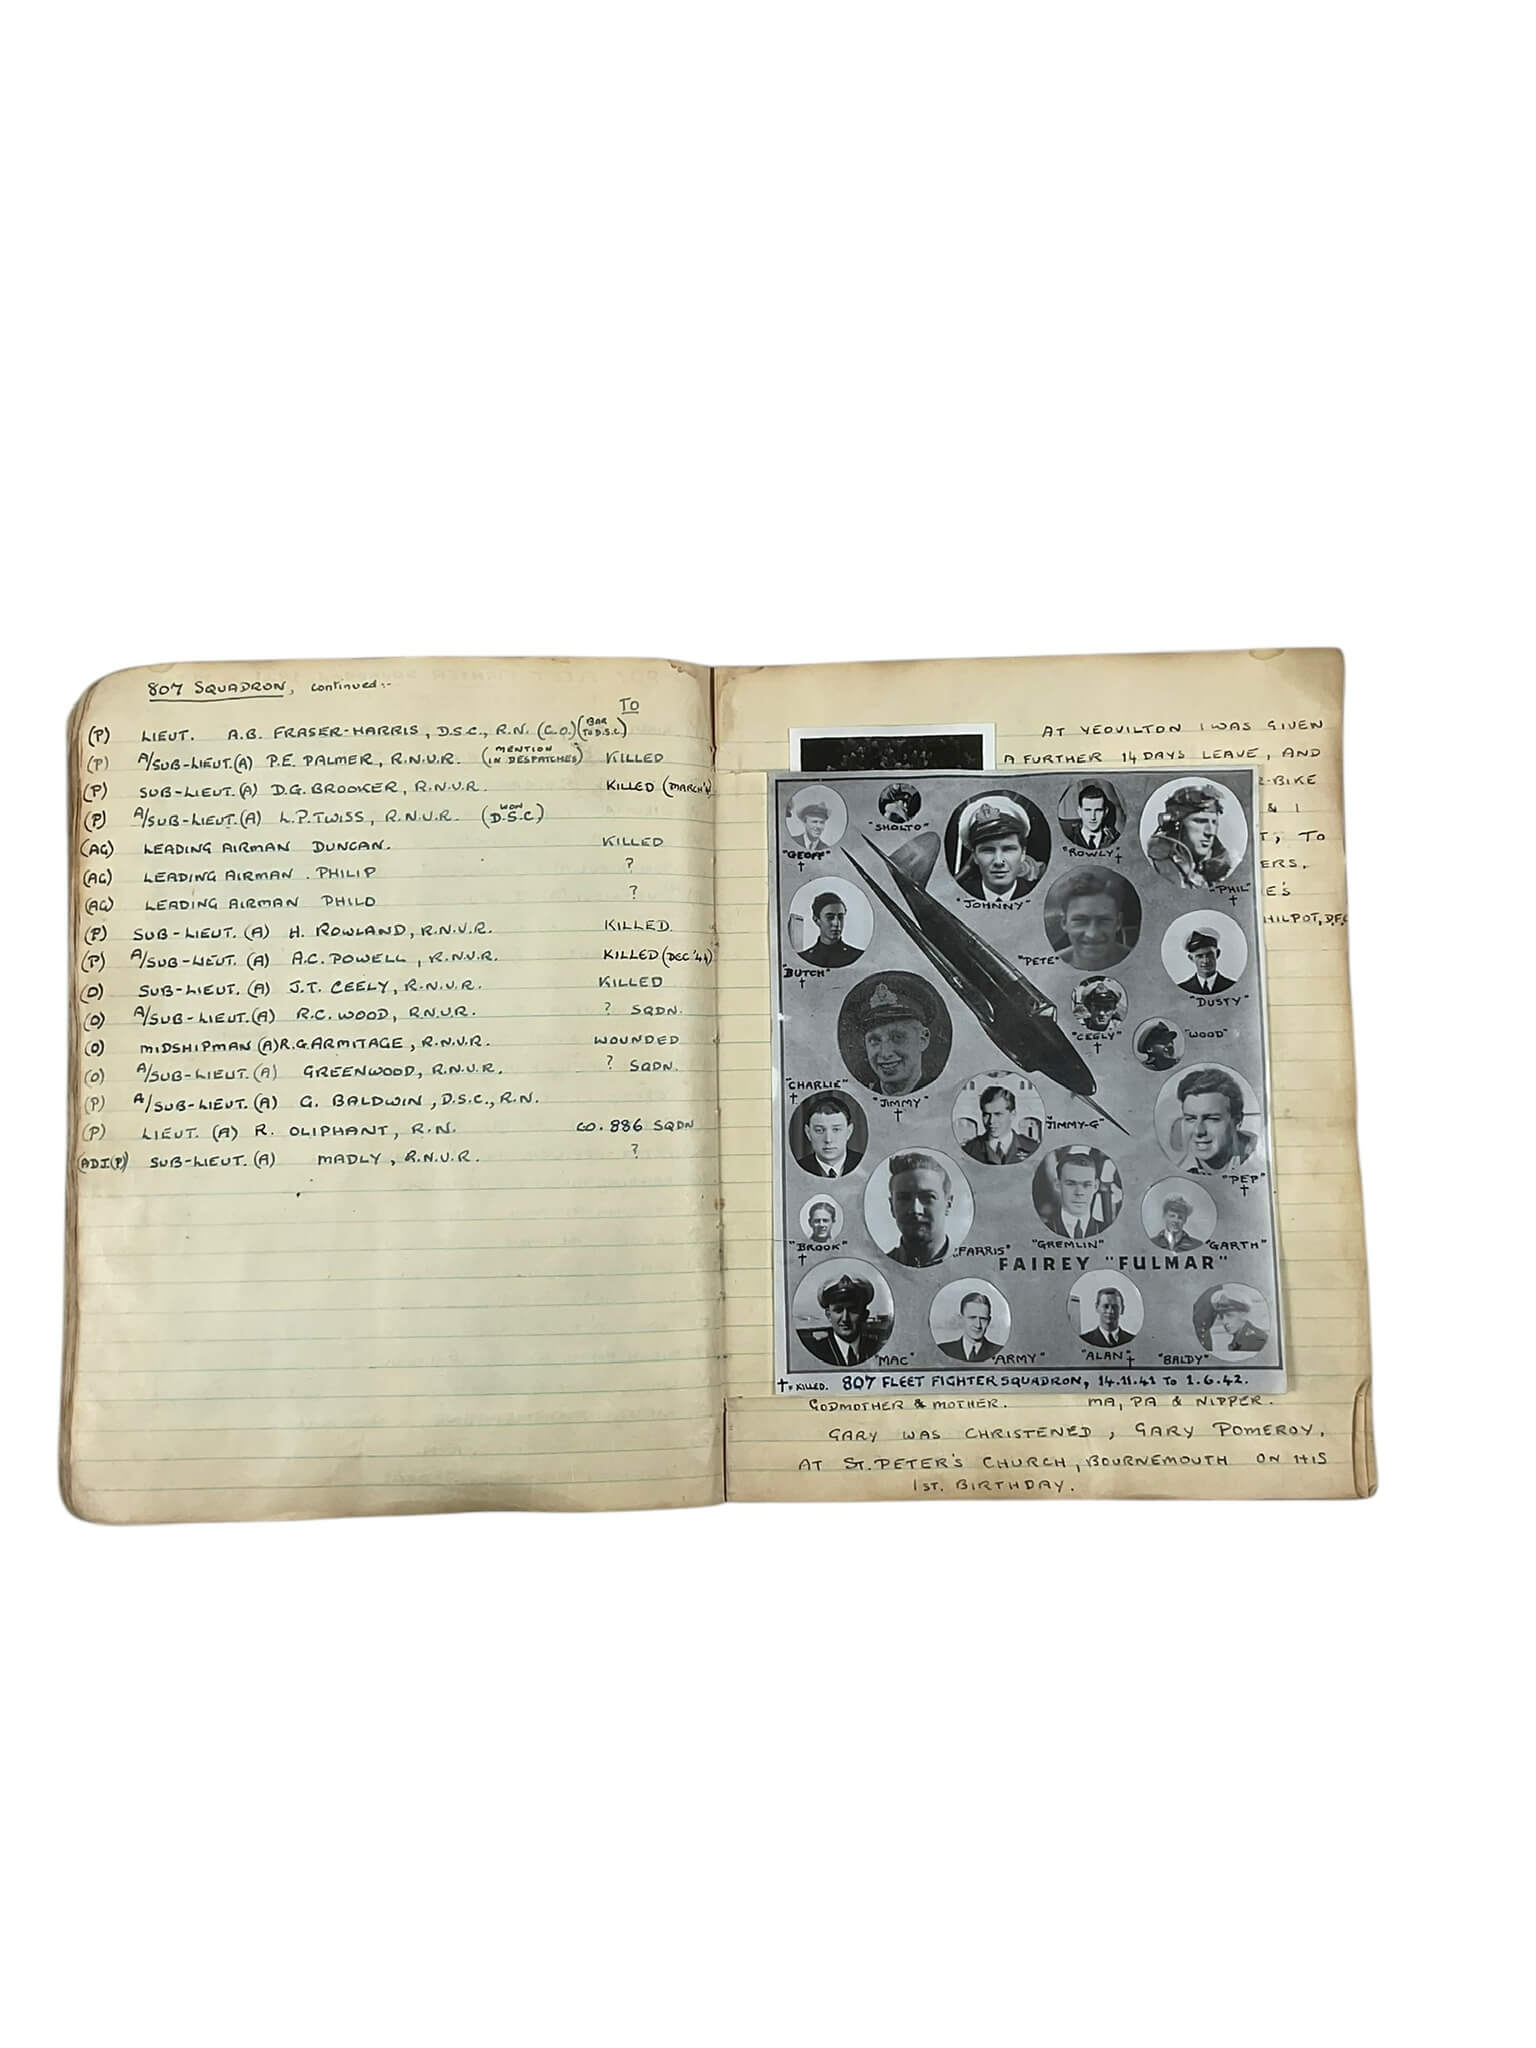 807 SQUADRON, continued:-
TO
(P) LIEUT. A.B. FRASER-HARRIS, D.S.C., R.N. (C.O.) (BAR TO D.S.C.)
(P) A/SUB-LIEUT.(A) P.E. PALMER, R.N.V.R. (MENTION IN DESPATCHES) KILLED
(P) SUB-LIEUT.(A) D.G. BROOKER, R.N.V.R. KILLED (MARCH
(P) A/SUB-LIEUT.(A) L.P. TWISS, R.N.V.R. (WON D.S.C)
(AG) LEADING AIRMAN DUNCAN. KILLED
(AG) LEADING AIRMAN. PHILIP ?
(AG) LEADING AIRMAN PHILO ?
(P) SUB-LIEUT. (A) H. ROWLAND, R.N.V.R. KILLED.
(P) A/SUB-LIEUT. (A) A.C. POWELL, R.N.V.R. KILLED (DEC '44)
(O) SUB-LIEUT. (A) J.T. CEELY, R.N.V.R. KILLED
(O) A/SUB-LIEUT.(A) R.C. WOOD, R.N.V.R. ? SQDN.
(O) MIDSHIPMAN (A) R.G. ARMITAGE, R.N.V.R. WOUNDED
(O) A/SUB-LIEUT.(A) GREENWOOD, R.N.V.R. ? SQDN.
(P) A/SUB-LIEUT. (A) G. BALDWIN, D.S.C., R.N.
(P) LIEUT. (A) R. OLIPHANT, R.N. CO. 886 SQDN
(ADJ(P)) SUB-LIEUT.(A) MADLY, R.N.V.R. ?
AT YEOVILTON I WAS GIVEN
A FURTHER 14 DAYS LEAVE, AND
-BIKE
& I
, TO
ERS.
E'S
HILPOT, D.F.C
"GEOFF" †
"SHOLTO"
"JOHNNY"
"ROWLY" †
"PHIL" †
"BUTCH" †
"PETE"
"DUSTY"
"CEELY" †
"WOOD"
"CHARLIE" †
"JIMMY" †
"JIMMY-G"
"PEP" †
"BROOK" †
"FARRIS"
"GREMLIN"
"GARTH"
FAIREY "FULMAR"
"MAC"
"ARMY"
"ALAN" †
"BALDY"
† = KILLED. 807 FLEET FIGHTER SQUADRON, 14.11.41 TO 1.6.42.
GODMOTHER & MOTHER. MA, PA & NIPPER.
GARY WAS CHRISTENED, GARY POMEROY,
AT ST. PETER'S CHURCH, BOURNEMOUTH ON HIS
1ST. BIRTHDAY.